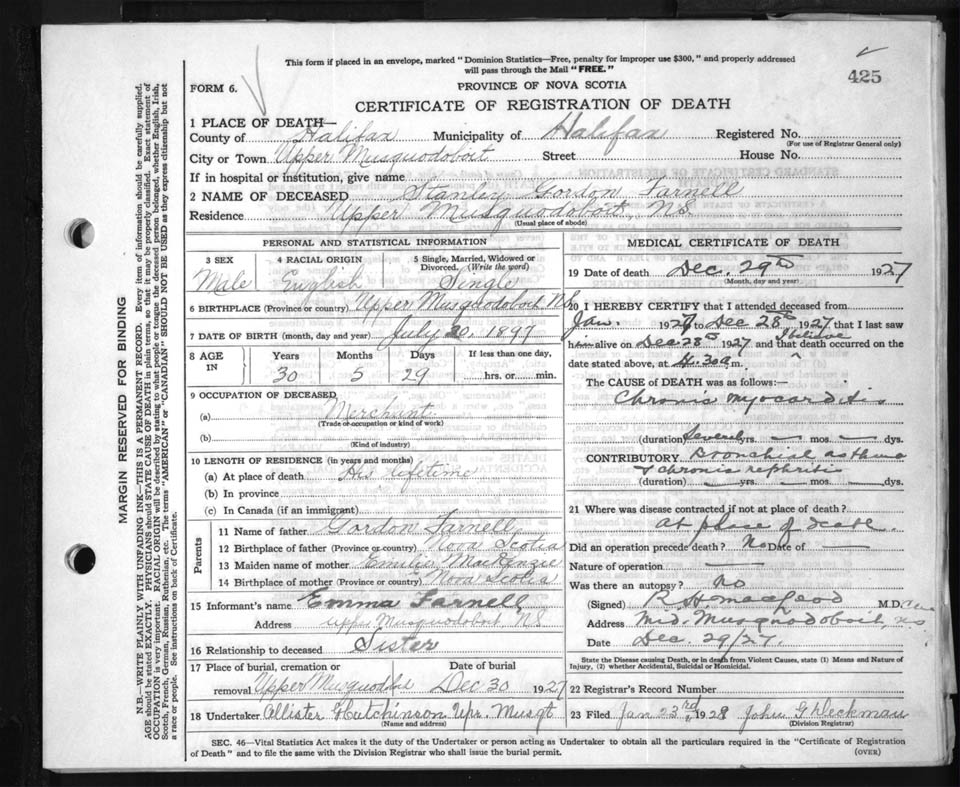 This form if placed in an envelope, marked "Dominion Statistics—Free, penalty for improper use $300," and properly addressed
will pass through the Mail "FREE."
425
FORM 6.
PROVINCE OF NOVA SCOTIA
CERTIFICATE OF REGISTRATION OF DEATH
1 PLACE OF DEATH—
County of Halifax Municipality of Halifax Registered No.
(For use of Registrar General only)
City or Town Upper Musquodoboit Street House No.
If in hospital or institution, give name
2 NAME OF DECEASED Stanley Gordon Farnell
Residence Upper Musquodoboit, N.S.
(Usual place of abode)
PERSONAL AND STATISTICAL INFORMATION
3 SEX 4 RACIAL ORIGIN 5 Single, Married, Widowed or
Divorced. (Write the word)
Male English Single
6 BIRTHPLACE (Province or country) Upper Musquodoboit N.S.
7 DATE OF BIRTH (month, day and year) July 30. 1897
8 AGE IN Years Months Days If less than one day,
30 5 29 hrs. or min.
9 OCCUPATION OF DECEASED
(a) Merchant
(Trade or occupation or kind of work)
(b)
(Kind of industry)
10 LENGTH OF RESIDENCE (in years and months)
(a) At place of death His lifetime
(b) In province
(c) In Canada (if an immigrant)
Parents
11 Name of father Gordon Farnell
12 Birthplace of father (Province or country) Nova Scotia
13 Maiden name of mother Emilie MacKenzie
14 Birthplace of mother (Province or country) Nova Scotia
15 Informant's name Emma Farnell
Address Upper Musquodoboit, N.S.
16 Relationship to deceased Sister
17 Place of burial, cremation or Date of burial
removal Upper Musquodoboit Dec 30 1927
18 Undertaker Allister Hutchinson Upr. Musqt
(Name and address)
MEDICAL CERTIFICATE OF DEATH
19 Date of death Dec. 29th 1927
(Month, day and year)
20 I HEREBY CERTIFY that I attended deceased from
Jan. 1927 to Dec 28th 1927 that I last saw
h alive on Dec. 28th 1927 and that death occurred on the
date stated above, at 4.30 a. m.
The CAUSE of DEATH was as follows:—
Chronic myocarditis
(duration) Several yrs. — mos. — dys.
CONTRIBUTORY Bronchial asthma
& chronic nephritis
(duration) — yrs. — mos. — dys.
21 Where was disease contracted if not at place of death?
At place of death
Did an operation precede death? No Date of —
Nature of operation —
Was there an autopsy? No
(Signed) R. H. Macleod M.D.
Address Mid. Musquodoboit, N.S.
Date Dec. 29/27.
State the Disease causing Death, or in death from Violent Causes, state (1) Means and Nature of
Injury, (2) whether Accidental, Suicidal or Homicidal.
22 Registrar's Record Number
23 Filed Jan 23rd, 1928 John G Deckman
(Division Registrar)
SEC. 46—Vital Statistics Act makes it the duty of the Undertaker or person acting as Undertaker to obtain all the particulars required in the "Certificate of Registration
of Death" and to file the same with the Division Registrar who shall issue the burial permit.
(OVER)
MARGIN RESERVED FOR BINDING
N.B.—WRITE PLAINLY WITH UNFADING INK—THIS IS A PERMANENT RECORD. Every item of information should be carefully supplied.
AGE should be stated EXACTLY. PHYSICIANS should STATE CAUSE OF DEATH in plain terms, so that it may be properly classified. Exact statement of
OCCUPATION is very important. RACIAL ORIGIN will be described by stating to what people or tongue the deceased person belonged, whether English, Irish,
Scotch, French, German, Russian, Ruthenian, etc. The terms "AMERICAN" or "CANADIAN" SHOULD NOT BE USED as they express citizenship but not
a race or people. See instructions on back of Certificate.